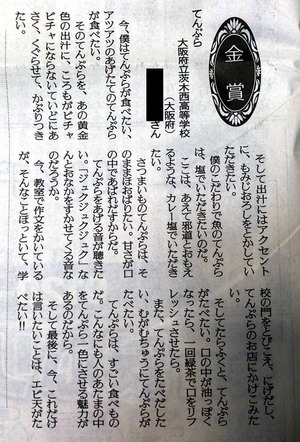 金賞
てんぷら
大阪府立茨木西高等学校
(大阪府)
さん
今、僕はてんぷらが食べたい、
アツアツのあげたてのてんぷら
が食べたい。
そのてんぷらを、あの黄金
色の出汁に、ころもがビチャ
ビチャにならないていどにあ
さく、くぐらせて、かぶりつき
たい。
そして出汁にはアクセント
に、もみじおろしをとかしてい
ただきたい。
僕のこだわりで魚のてんぷら
は、塩でいただきたい。
ここは、あえて邪道とおもえ
るような、カレー塩でいただき
たい。
さつまいものてんぷらは、そ
のままほおばりたい。甘さが口
の中であばれだすからだ。
てんぷらをあげる音が聴きた
い。「ジュクジュクジュク」な
んとおなかをすかせてくる音な
のだろうか。
今、教室で作文をかいている
が、そんなことほっといて、学
校の門をとびこえ、にげだし、
てんぷらのお店にかけこみた
い。
そしてたらふくと、てんぷら
がたべたい。口の中が油っぽく
なったら、一回緑茶で口をリフ
レッシュさせたら。
また、てんぷらをたべだした
い、むがむちゅうにてんぷらが
たべたい。
てんぷらは、すごい食べもの
だ。こんなにも人のあたまの中
をてんぷら一色にさせる魅力が
あるのだから。
そして最後に、今、これだけ
は言いたいことは、エビ天がた
べたい!!